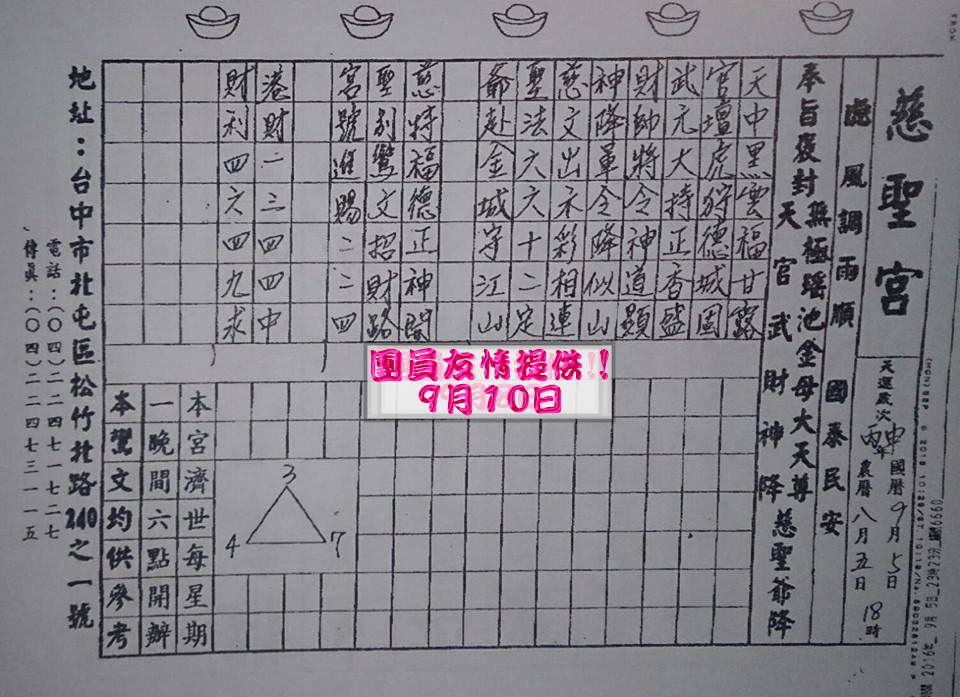 慈聖宮
天運歲次丙申年
國曆9月5日
農曆八月五日
18時
虔 風調雨順 國泰民安
奉旨褒封無極瑶池金母大天尊
天官武財神降慈聖爺降
天中黑雲福甘露
官壇虎狩德城固
武元大持正香盛
財帥將令神道顯
神降軍令降似山
慈文出示彩相連
聖法六六十二定
爺赴金城守江山
慈特福德正神開
聖別鸞文招財路
宮號進賜二二四
港財二三四四中
財利四六四九求
團員友情提供!!
9月10日
3
4 7
本宮濟世每星期
一晚間六點開辦
本鸞文均供參考
地址：台中市北屯區松竹北路240之一號
電話：(〇四)二二四七一七二七
傳真：(〇四)二二四七三一一五
2016年_ 9月 5日_23時23分_